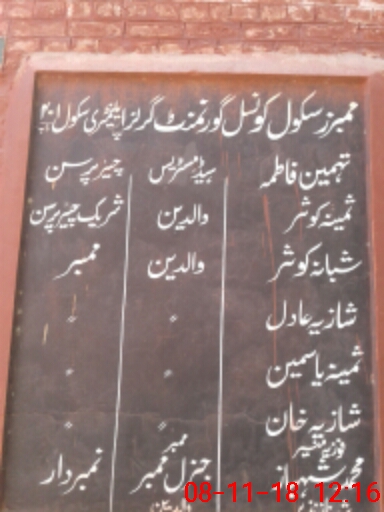 ممبرز سکول کونسل گورنمنٹ گرلز ایلیمنٹری سکول
تہمین فاطمہ ہیڈمسٹریس چیئرپرسن
ثمینہ کوثر والدین شریک چیئرپرسن
شبانہ کوثر والدین ممبر
شازیہ عادل 〃 〃
ثمینہ یاسمین 〃 〃
شازیہ خان 〃 〃
جنرل ممبر نمبردار
08-11-18 12:16